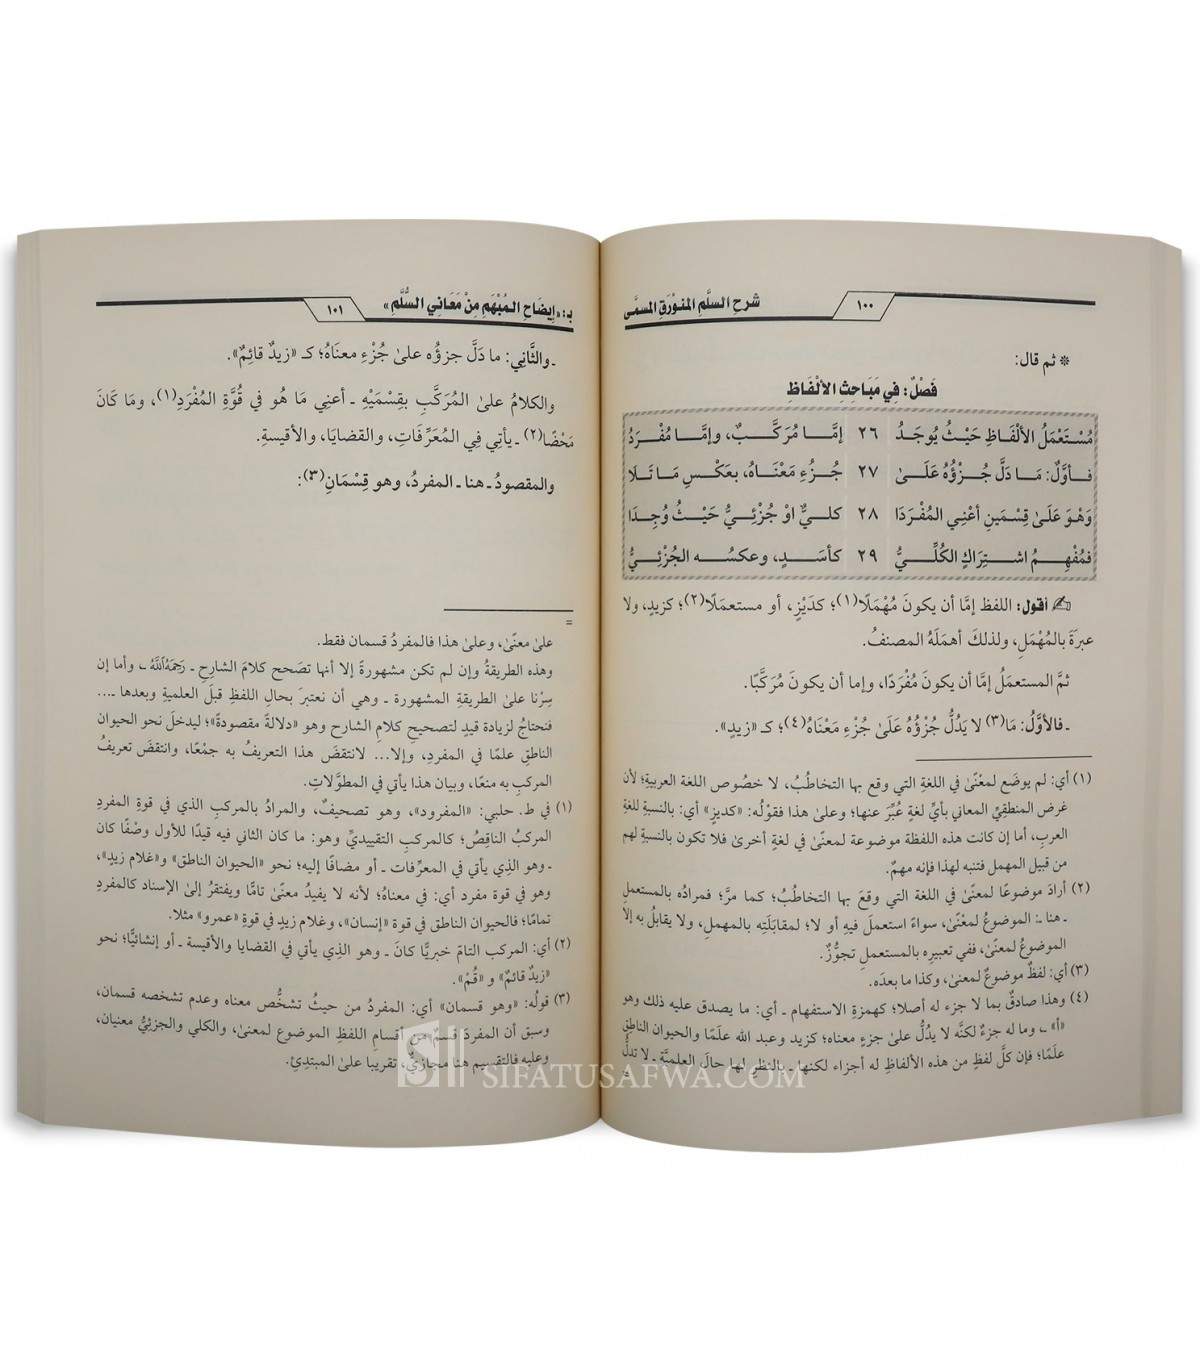 ١٠٠
شرح السلم المنورق المسمى
* ثم قال:
فَصْلٌ: فِي مَبَاحِثِ الأَلْفَاظِ
مُسْتَعْمَلُ الأَلْفَاظِ حَيْثُ يُوجَدُ ٢٦ إِمَّا مُرَكَّبٌ، وإِمَّا مُفْرَدُ
فأوَّلٌ: مَا دَلَّ جُزْؤُهُ عَلَىٰ ٢٧ جُزْءِ مَعْنَاهُ، بعَكْسِ مَا تَلَا
وَهْوَ عَلَىٰ قِسْمَينِ أعْنِي المُفْرَدَا ٢٨ كليٌّ اوْ جُزْئِيٌّ حَيْثُ وُجِدَا
فمُفْهِمُ اشتِرَاكٍ الكُلِّيُّ ٢٩ كأسَدٍ، وعكسُه الجُزْئِيُّ
أقول: اللفظ إمَّا أن يكونَ مُهْمَلًا(١)؛ كدَيْزٍ، أو مستعمَلًا(٢)؛ كزيدٍ، ولا
عبرةَ بالمُهْمَلِ، ولذلكَ أهمَلَهُ المصنفُ.
ثمَّ المستعمَلُ إمَّا أن يكونَ مُفْرَدًا، وإما أن يكونَ مُرَكَّبًا.
ـ فالأوَّلُ: مَا(٣) لا يَدُلُّ جُزْؤُهُ عَلَىٰ جُزْءِ مَعْنَاهُ(٤)؛ كـ «زيدٍ».
(١) أي: لم يوضَع لمعْنًى في اللغة التي وقع بها التخاطُبُ، لا خصُوص اللغة العربيةِ؛ لأن
غرض المنطقِيِّ المعاني بأيِّ لغةٍ عُبِّرَ عنها؛ وعلىٰ هذا فقوْلُه: «كديزٍ» أي: بالنسبةِ للغةِ
العربِ، أما إن كانت هذه اللفظة موضوعة لمعنًى في لغةٍ أخرىٰ فلا تكون بالنسبةِ لهم
من قبيل المهمل فتنبه لهذا فإنه مهمٌ.
(٢) أرادَ موضوعًا لمعنًى في اللغة التي وقعَ بها التخاطُبُ؛ كما مرَّ؛ فمرادُه بالمستعملِ
ـ هنا ـ: الموضوعُ لمعْنًى، سواءً استعملَ فيهِ أو لا؛ لمقابَلَتِه بالمهملِ، ولا يقابلُ به إلا
الموضوعُ لمعنًى، ففي تعبيرِه بالمستعملِ تجوُّزٌ.
(٣) أي: لفظٌ موضوعٌ لمعنى، وكذا ما بعدَه.
(٤) وهذا صادقٌ بما لا جزء له أصلا؛ كهمزةِ الاستفهام ـ أي: ما يصدق عليه ذلك وهو
«أ» ـ، وما له جزءٌ لكنَّه لا يدُلُّ علىٰ جزءِ معناه؛ كزيد وعبد الله علَمًا والحيوان الناطقِ
علَمًا؛ فإن كلَّ لفظٍ من هذه الألفاظِ له أجزاء لكنها ـ بالنظرِ لها حالَ العلميَّة ـ لا تدلُّ
=
١٠١
بـ: «إِيضَاحِ المُبْهَمِ مِنْ مَعَانِي السُّلَّمِ»
ـ والثَّانِي: ما دَلَّ جزؤُه علىٰ جُزْءِ معناهُ؛ كـ «زيدٌ قائِمٌ».
والكلامُ علىٰ المُرَكَّبِ بقِسْمَيْهِ ـ أعنِي ما هُو في قُوَّةِ المُفْرَدِ(١)، ومَا كَانَ
مَحْضًا(٢) ـ يأتِي فِي المُعَرِّفَاتِ، والقضايَا، والأقيسةِ.
والمقصودُ ـ هنا ـ المفردُ، وهو قِسْمَانِ(٣):
=
علىٰ معنًى، وعلىٰ هذا فالمفردُ قسمان فقط.
وهذه الطريقةُ وإن لم تكن مشهورةً إلا أنها تصَحح كلامَ الشارحِ ـ رَحِمَهُ اللَّهُ ـ، وأما إن
سِرْنا علىٰ الطريقةِ المشهورة ـ وهي أن نعتبرَ بحالِ اللفظِ قبلَ العلميةِ وبعدها ـ...
فنحتاجُ لزيادة قيدٍ لتصحيحِ كلامِ الشارح وهو «دلالةً مقصودةً»؛ ليدخلَ نحو الحيوان
الناطقِ علمًا في المفردِ، وإلا... لانتقضَ هذا التعريفُ به جمْعًا، وانتقضَ تعريفُ
المركبِ به منعًا، وبيان هذا يأتي في المطوَّلاتِ.
(١) في ط. حلبي: «المفرود»، وهو تصحيفٌ، والمرادُ بالمركبِ الذي في قوةِ المفردِ
المركبُ الناقِصُ؛ كالمركبِ التقييديِّ وهو: ما كان الثاني فيه قيدًا للأول وصْفًا كان
ـ وهو الذِي يأتي في المعرِّفات ـ أو مضافًا إليه؛ نحو «الحيوان الناطق» و«غلام زيدٍ»،
وهو في قوة مفرد أي: في معناهُ؛ لأنه لا يفيدُ معنًى تامًّا ويفتقرُ إلىٰ الإسناد كالمفردِ
تمامًا؛ فالحيوان الناطق في قوة «إنسان»، وغلام زيدٍ في قوةِ «عمرو» مثلا.
(٢) أي: المركب التامّ خبريًّا كانَ ـ وهو الذِي يأتي في القضايا والأقيسة ـ أو إنشائيًّا؛ نحو
«زيدٌ قائمٌ» و «قُمْ».
(٣) قولُه: «وهو قسمان» أي: المفردُ من حيثُ تشخُّص معناه وعدم تشخصه قسمان،
وسبق أن المفردَ قسمٌ من أقسامِ اللفظِ الموضوع لمعنًى، والكلي والجزئِيُّ معنيان،
وعليه فالتقسيم هنا مجازيٌّ، تقريبا علىٰ المبتدِئِ.
SIFATUSAFWA.COM